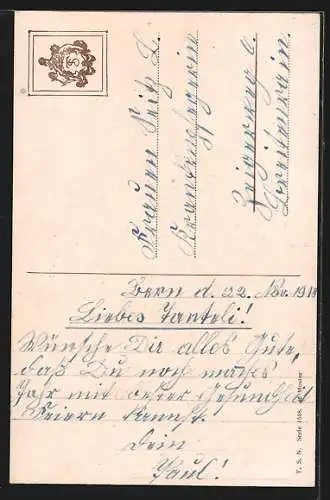 Frauen Seitz L.
Krankenpflegerin
Zeigerweg 6.
Breitenrain.
Bern d. 22. Nov. 1918
Liebes Tanteli!
Wünsche Dir alles Gute,
daß Du noch manches
Jahr mit bester Gesundheit
feiern kannst.
Dein
Paul!
T. S. N. Serie 1548.